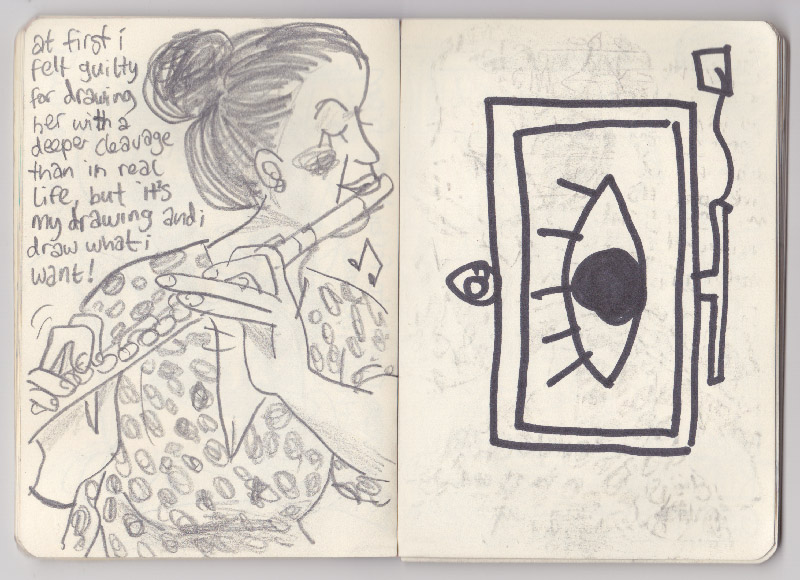 at first i
felt guilty
for drawing
her with a
deeper cleavage
than in real
life, but it's
my drawing and i
draw what i
want!